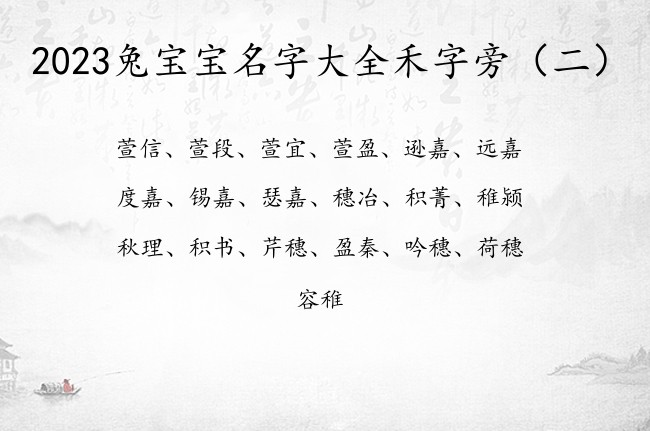 2023兔宝宝名字大全禾字旁（二）
萱信、萱段、萱宜、萱盈、逊嘉、远嘉
度嘉、锡嘉、瑟嘉、穗冶、积菁、稚颍
秋理、积书、芹穗、盈秦、吟穗、荷穗
容稚